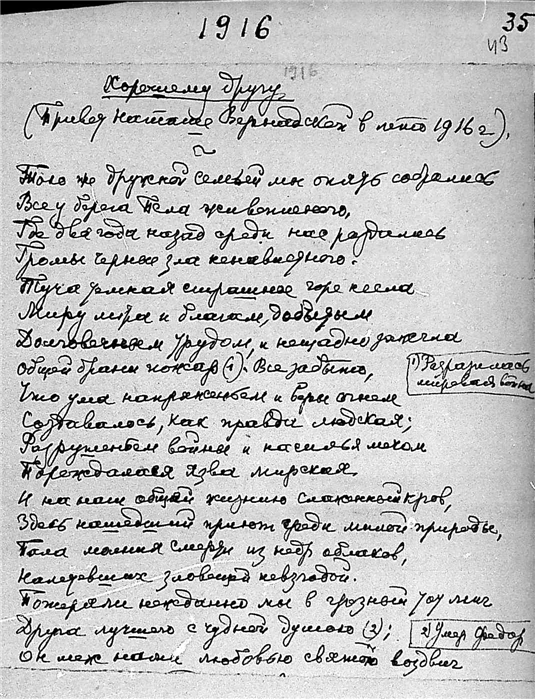 1916
35
43
1916
Хорошему другу
(Привет Наташе Вернадской в лето 1916 г.),
Тою же дружной семьей мы опять собрались
Все у берега Пела живописного,
Где два года назад среди нас раздались
Громы черные зла ненавистного.
Туча темная страшное горе несла
Миру мира и благам, добытым
Долговечным трудом, и нещадно зажгла
Общей брани пожар (1). Все забыто,
1) Разразилась
мировая война
Что ума напряженьем и веры огнем
Создавалось, как правда людская;
Разрушеньем войны и насилья мечом
Порождалася язва мирская.
И на наш общей жизнию слаженный кров,
Здесь нашедший приют среди милой природы,
Пала молния смерти из недр облаков,
Налетевших зловещей невзгодой.
Потеряли нежданно мы в грозный тот миг
Друга лучшего с чудной душою (2);
2) Умер Федор
Он меж нами любовью святой воздвиг